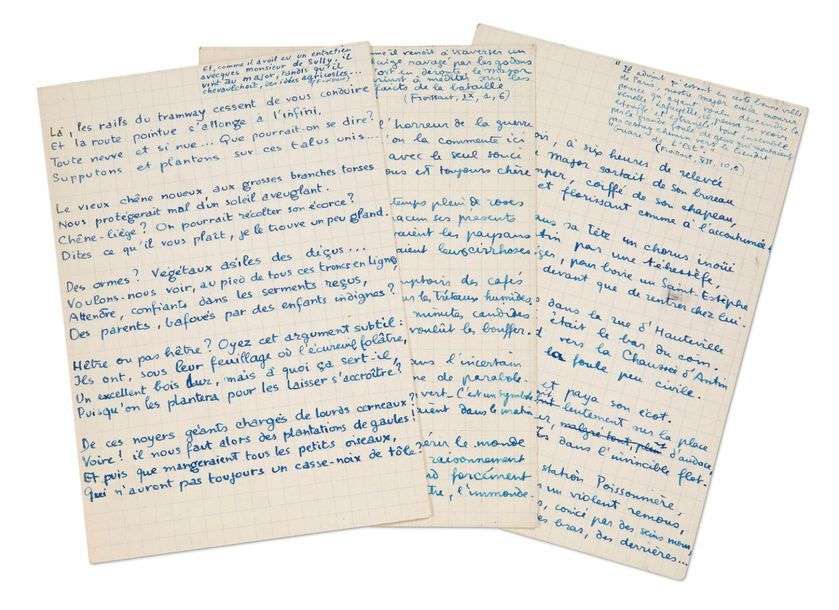 Et, comme il avoit eu un entretien
avecques monsieur de Sully, il
vint au major, tandis qu'il
chevauchoit, des idées agricoles...
(Froissart)
Là, les rails du tramway cessent de vous conduire
Et la route pointue s'allonge à l'infini.
Toute neuve et si nue... Que pourrait-on se dire?
Supputons et plantons sur ces talus unis....
Le vieux chêne noueux aux grosses branches torses
Nous protégerait mal d'un soleil aveuglant.
Chêne-liège? On pourrait récolter son écorce?
Dites ce qu'il vous plaît, je le trouve un peu gland.
Des ormes? Végétaux asiles des déçus...
Voulons-nous voir, au pied de tous ces troncs en ligne,
Attendre, confiants dans les serments reçus,
Des parents, bafoués par des enfants indignes?
Hêtre ou pas hêtre? Oyez cet argument subtil:
Ils ont, sous leur feuillage où l'écureuil folâtre,
Un excellent bois dur, mais à quoi ça sert-il,
Puisqu'on les plantera pour les laisser s'accroître?
De ces noyers géants chargés de lourds corneaux?
Voire! il nous faut alors des plantations de gaules!
Et puis que mangeraient tous les petits oiseaux,
Qui n'auront pas toujours un casse-noix de tôle?
me il venoit à traverser un
ravagé par les godons
en déroute, le major
à méditer sur les
faicts de la bataille
(Froissart, IX, 1, 6)
l'horreur de la guerre
on la commente ici
avec le seul souci
ous est toujours chère
temps plein de roses
ses présents
raient les paysans
aient leurs cirrhoses
mptoirs des cafés
les tréteaux humides
minutes candides
voulût les bouffer.
ns l'incertain
ne de parabole.
vert - C'est un symbole
ient dans le matin
le monde
raisonnement
forcément
tre, l'immonde.
"Il advint que errant en ceste bonne ville
de Paris, nostre major
(Froissart, XII, 10, 6)
on, à six heures de relevée
major sortait de son bureau
per, coiffé de son chapeau,
et florissant comme à l'accoutumée
ns sa tête un chorus inouï
par une téhessèfe,
pour boire un Saint-Estèphe
devant que de rentrer chez lui.
dans la rue d'Hauteville
était le bar du coin.
vers la Chaussée d'Antin
la foule peu civile.
et paya son écot.
lentement sur la place
malgré tout, plein d'audace,
dans l'invincible flot.
station Poissonnière,
un violent remous,
coincé par des seins mous,
es bras, des derrières...